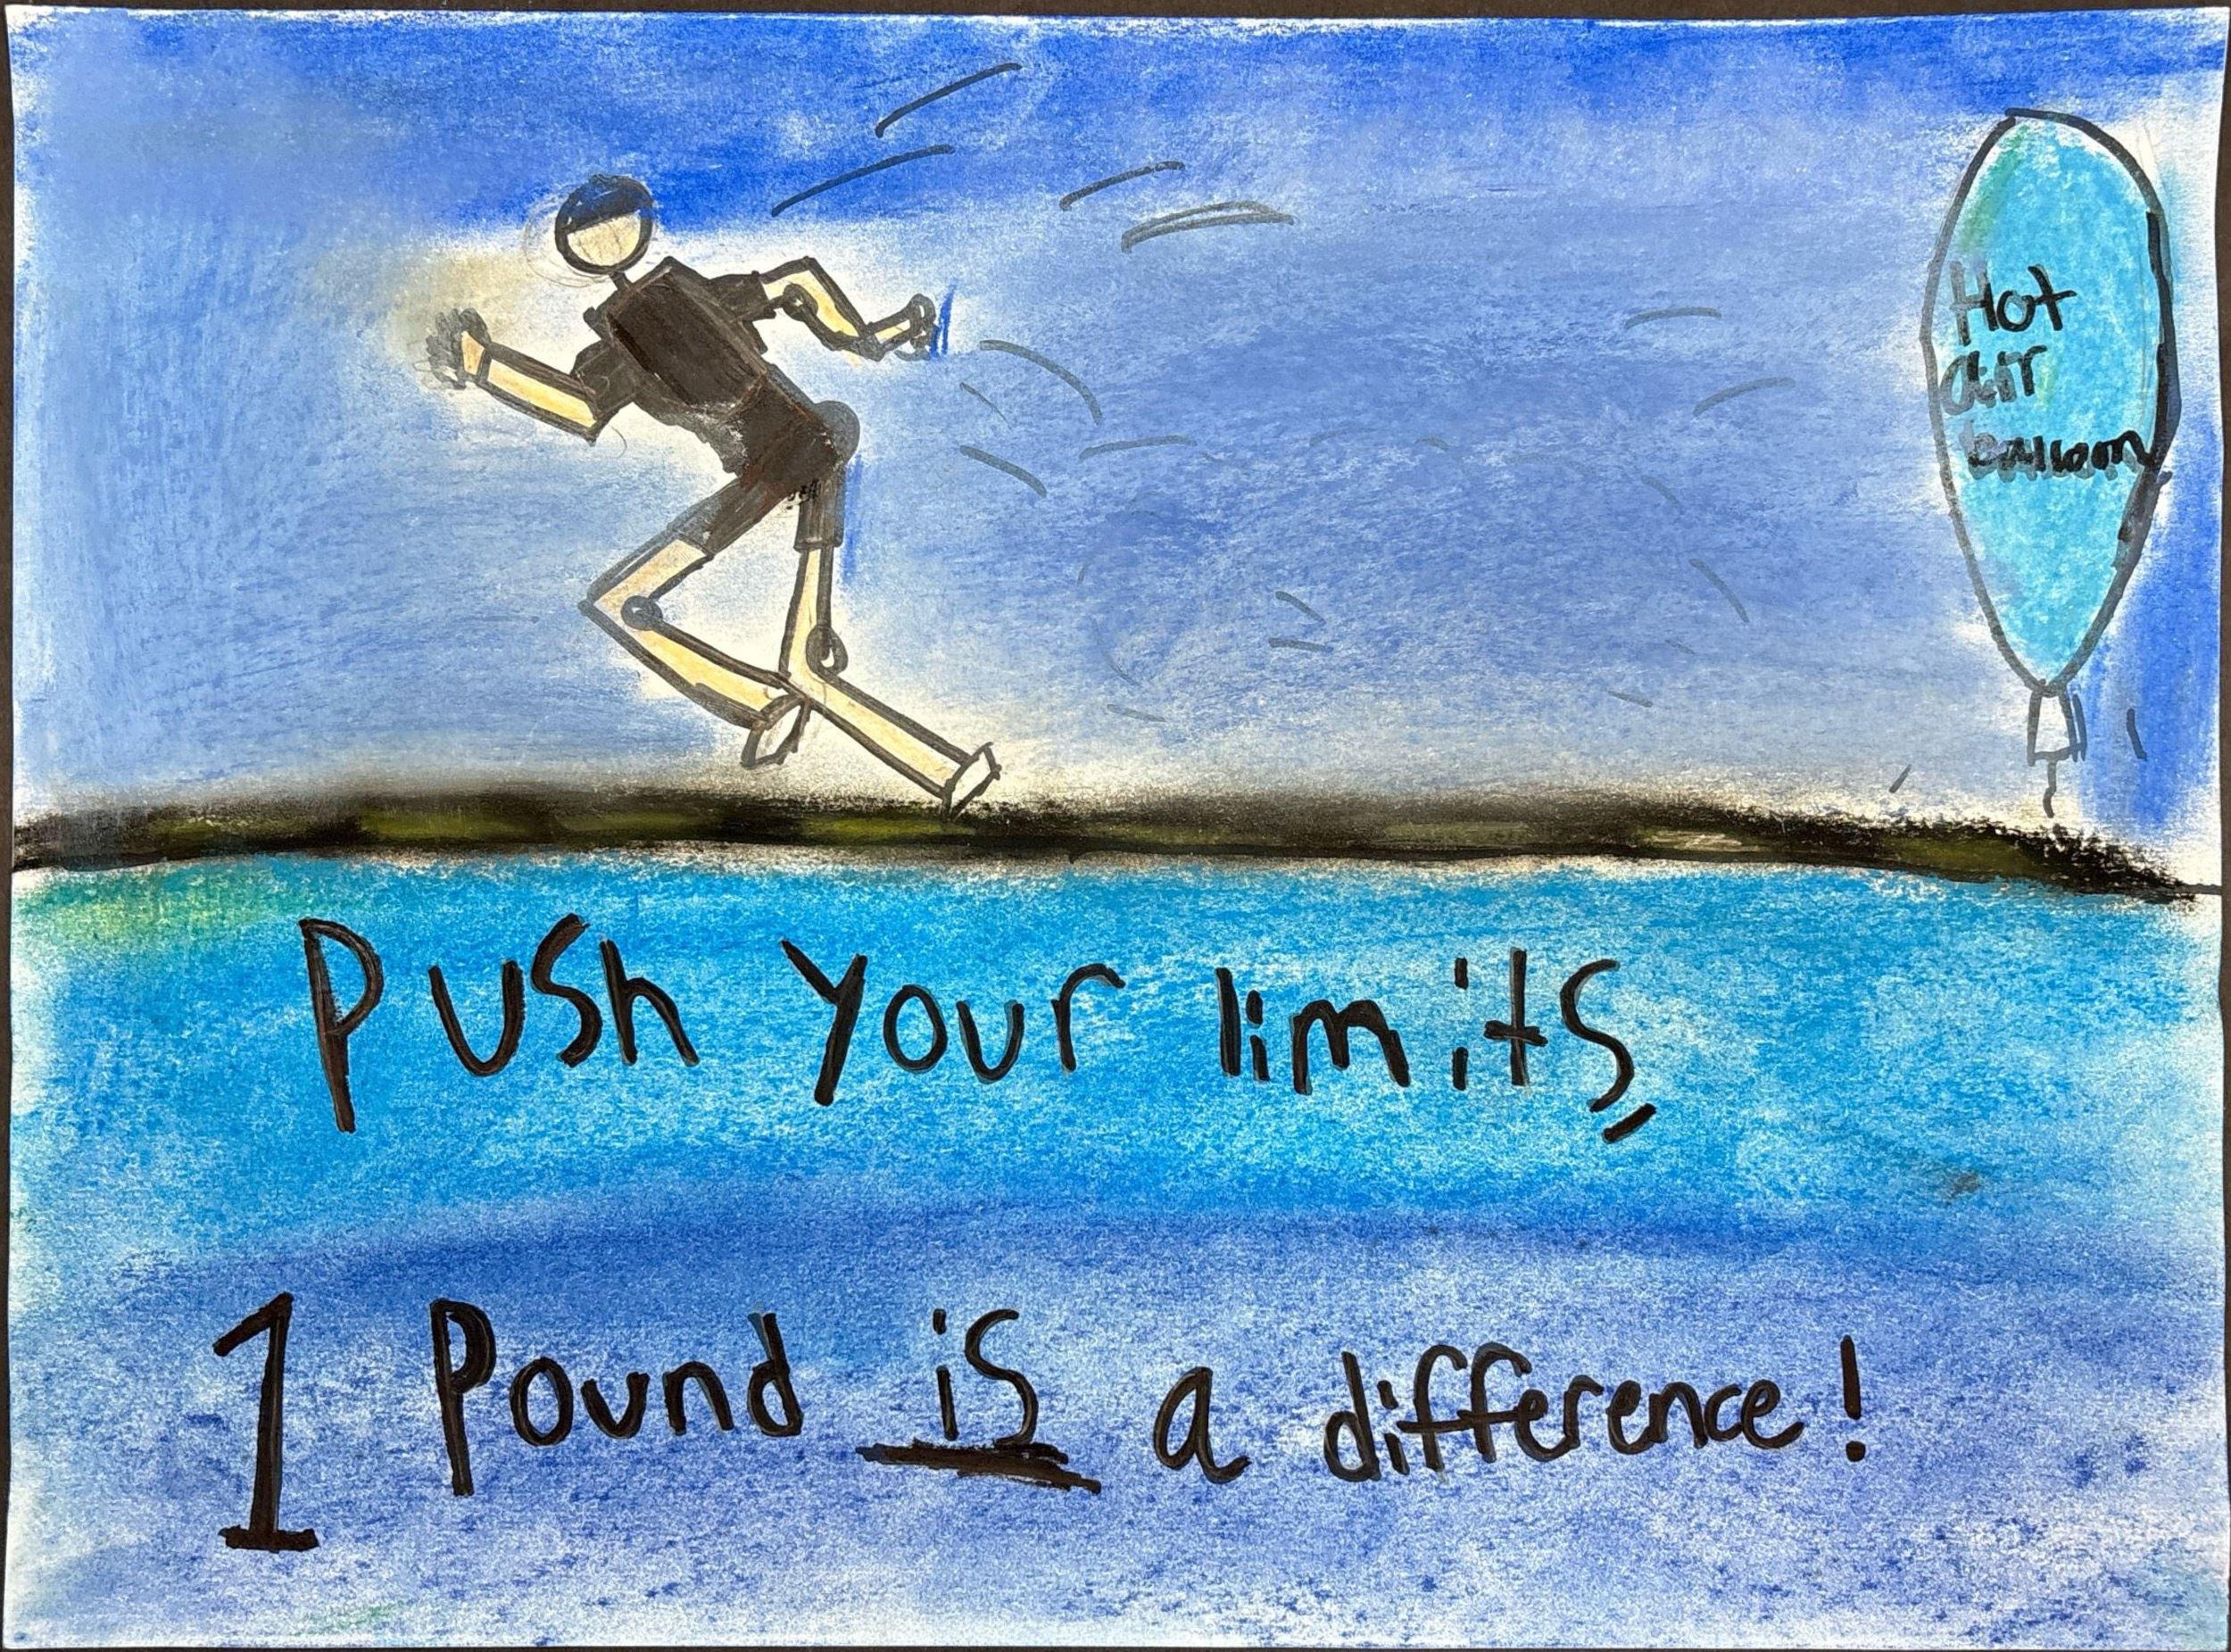 Hot
air
balloon
Push your limits,
1 Pound is a difference!